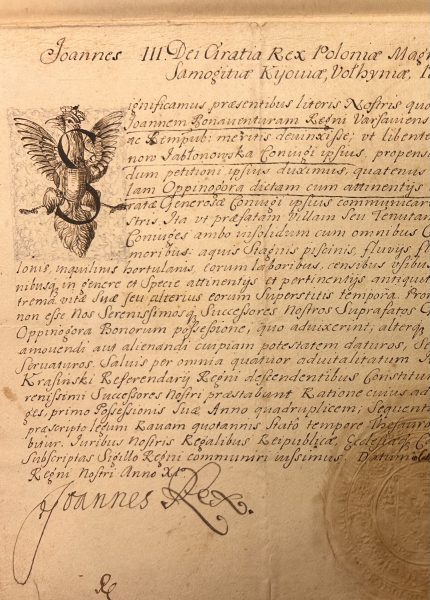 Joannes III. Dei Gratia Rex Poloniæ Mag
Samogitiæ Kyoviæ, Volhyniæ,
Significamus præsentibus literis Nostris quo
Joannem Bonaventuram Regni Varsaviens
ac Reipub: meritis devinxisse; vt libente
now Jabłonowska Coniugi ipsius, propens
dum petitioni ipsius duximus, quatenus
lam Oppinogora dictam cum attinentijs
ratæ Generosæ Coniugi ipsius communicar
stris. Ita vt præfatam Villam seu Tenutam
Coniuges ambo insolidum cum omnibus
moribus: aquis stagnis piscinis, fluvijs, fl
lonis, inquilinis hortulanis, eorum laboribus, censibus vsibus
nibusq; in genere et Specie attinentijs et pertinentijs antiquit
trema vitæ suæ seu alterius eorum Superstitis tempora. Pro
non esse Nos Serenissimosq; Successores Nostros Suprafatos
Oppinogora Bonorum possessione, quo aduixerint, alterq;
amovendi aut alienandi cuipiam potestatem daturos, Se
Servaturos. Salvis per omnia quatuor advitalitatum
Krasinski Referendarij Regni descendentibus Constitut
renissimi Successores Nostri præstabunt Ratione cuius ad
ges, primo Possessionis suæ Anno quadruplicem; Sequent
præscripto legum Kwam quotannis Stato tempore Thesauro
bitur. Juribus Nostris Regalibus Reipublicæ, Ecclesiæq;
Subscriptas Sigillo Regni communiri iussimus. Datum
Regni Nostri Anno
Joannes Rex.